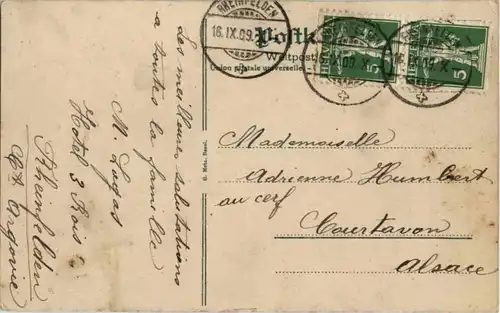 RHEINFELDEN
16.IX.09.
Weltpost
Union postale universelle.
16.IX.09.X
5
5
Les meilleures salutations
a toutes la famille
M. Lugas
Hotel 3 Rois
Rheinfelden
Ct Argovie
G. Metz, Basel.
Mademoiselle
Adrienne Humbert
au cerf
Courtavon
Alsace